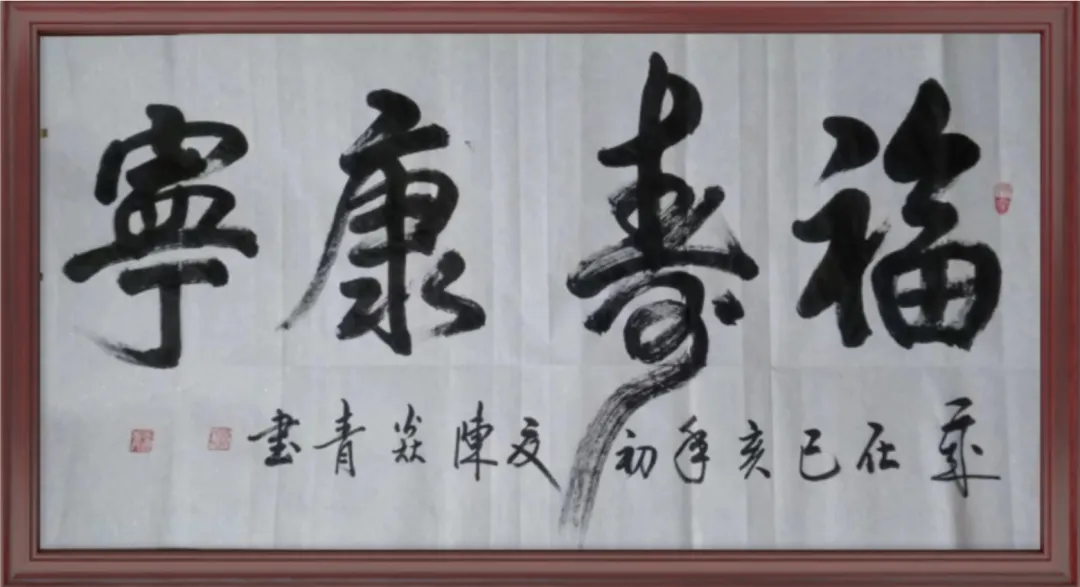 福壽康寧
歲在己亥年初夏陳焱青書